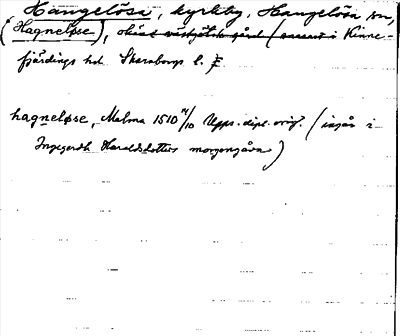 Hangelösa, kyrkby, Hangelösa sn,
(Hagneløse), okänt västgötsk gård (numera i Kinne-
fjärdings hd. Skaraborgs l.
hagneløse, Malma 1510 14/10 Upps. dipl. orig. (ingår i
Ingegerdh Haraldsdotters morgongåva)